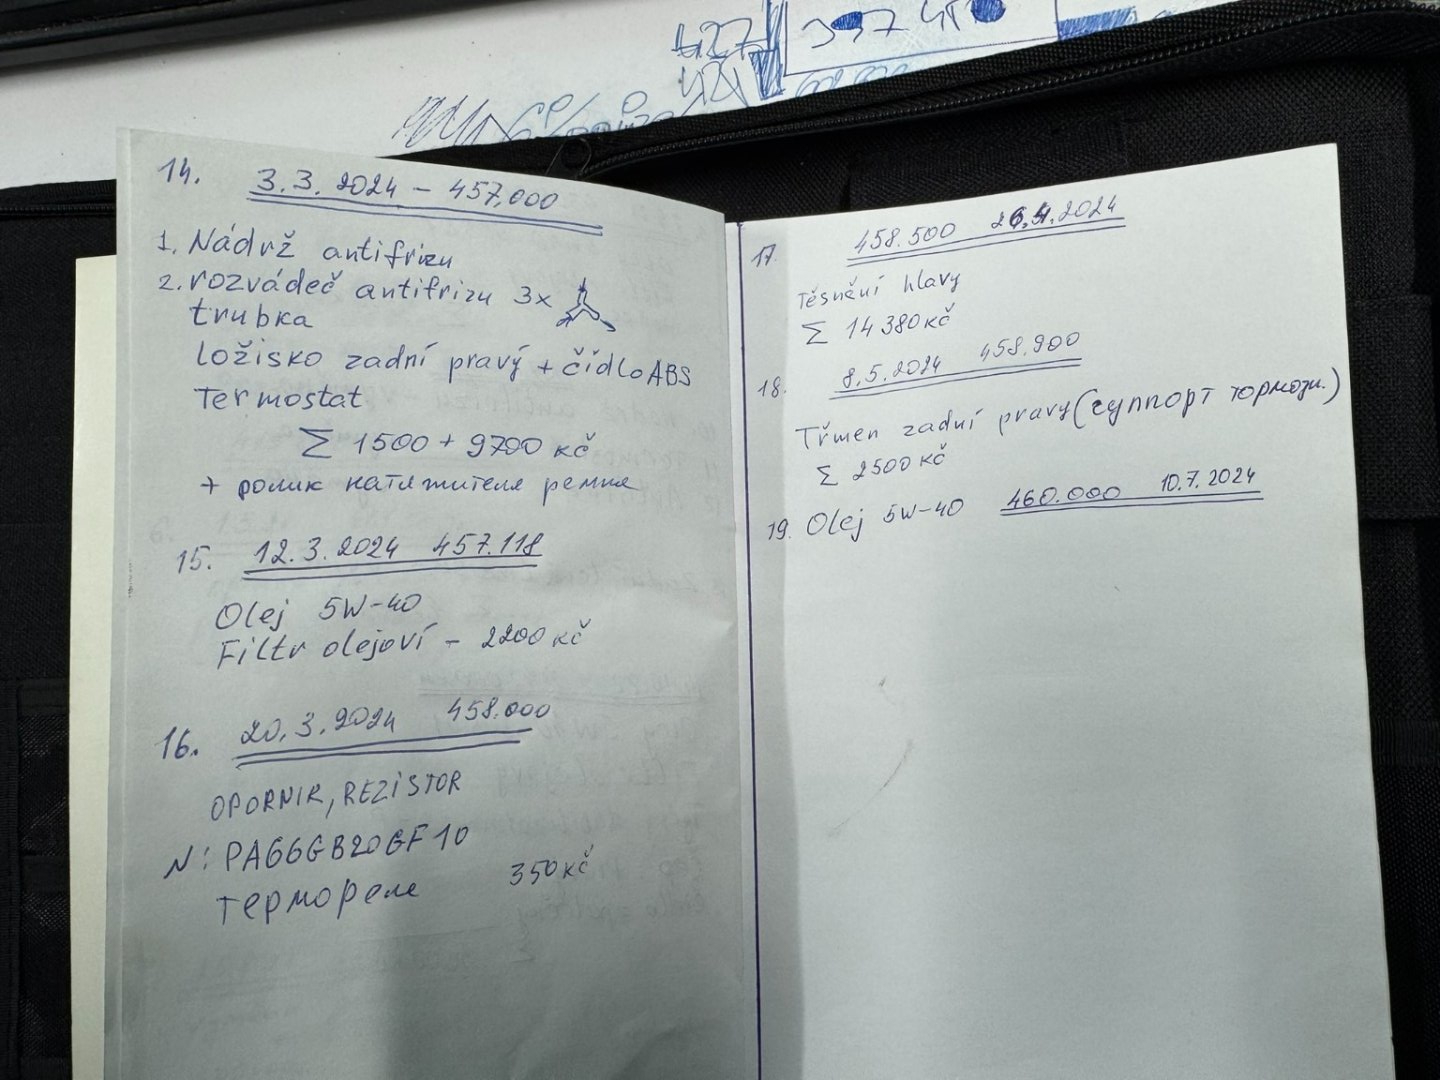 427
421
14. 3.3.2024 - 457,000
1. Nádrž antifrizu
2. rozváděč antifrizu 3x
trubka
ložisko zadní pravý + čídlo ABS
Termostat
Σ 1500 + 9700 Kč
+ ролик натяжителя ремня
15. 12.3.2024 457.118
Olej 5W-40
Filtr olejoví - 2200 Kč
16. 20.3.2024 458.000
OPORNIK, REZISTOR
N: PA66GB20GF10
Термореле 350 Kč
17. 458.500 26.4.2024
Těsnění hlavy
Σ 14 380 Kč
18. 8.5.2024 458.900
Třmen zadní pravy (суппорт тормозн.)
Σ 2500 Kč
19. Olej 5W-40 460.000 10.7.2024